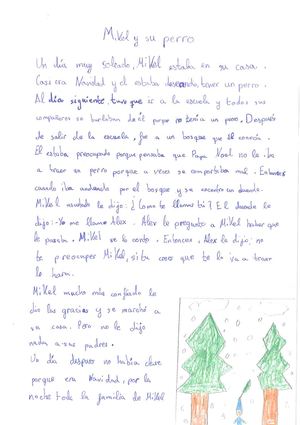 Mikel y su perro
Un día muy soleado, Mikel estaba en su casa.
Casi era Navidad y el estaba deseando tener un perro.
Al día siguiente, tuvo que ir a la escuela y todos sus
compañeros se burlaban de él porque no tenía un perro. Después
de salir de la escuela, fue a un bosque que el conocía.
El estaba preocupado porque pensaba que Papa Noel no le iba
a traer su perro porque a veces se comportaba mal. Entonces
cuando iba andando por el bosque y se encontro un duende.
Mikel asustado le dijo: ¿Como te llamas tú? El duende le
dijo:-Yo me llamo Alex. Alex le pregunto a Mikel haber que
le pasaba. Mikel se lo conto. Entonces, Alex le dijo: no
te preocupes Mikel, si tu crees que te lo va a traer
lo hara.
Mikel mucho más confiado le
dio las gracias y se marchó a
su casa. Pero no le dijo
nada a sus padres.
Un día despues no habia clase
porque era Navidad, por la
noche toda la familia de Mikel